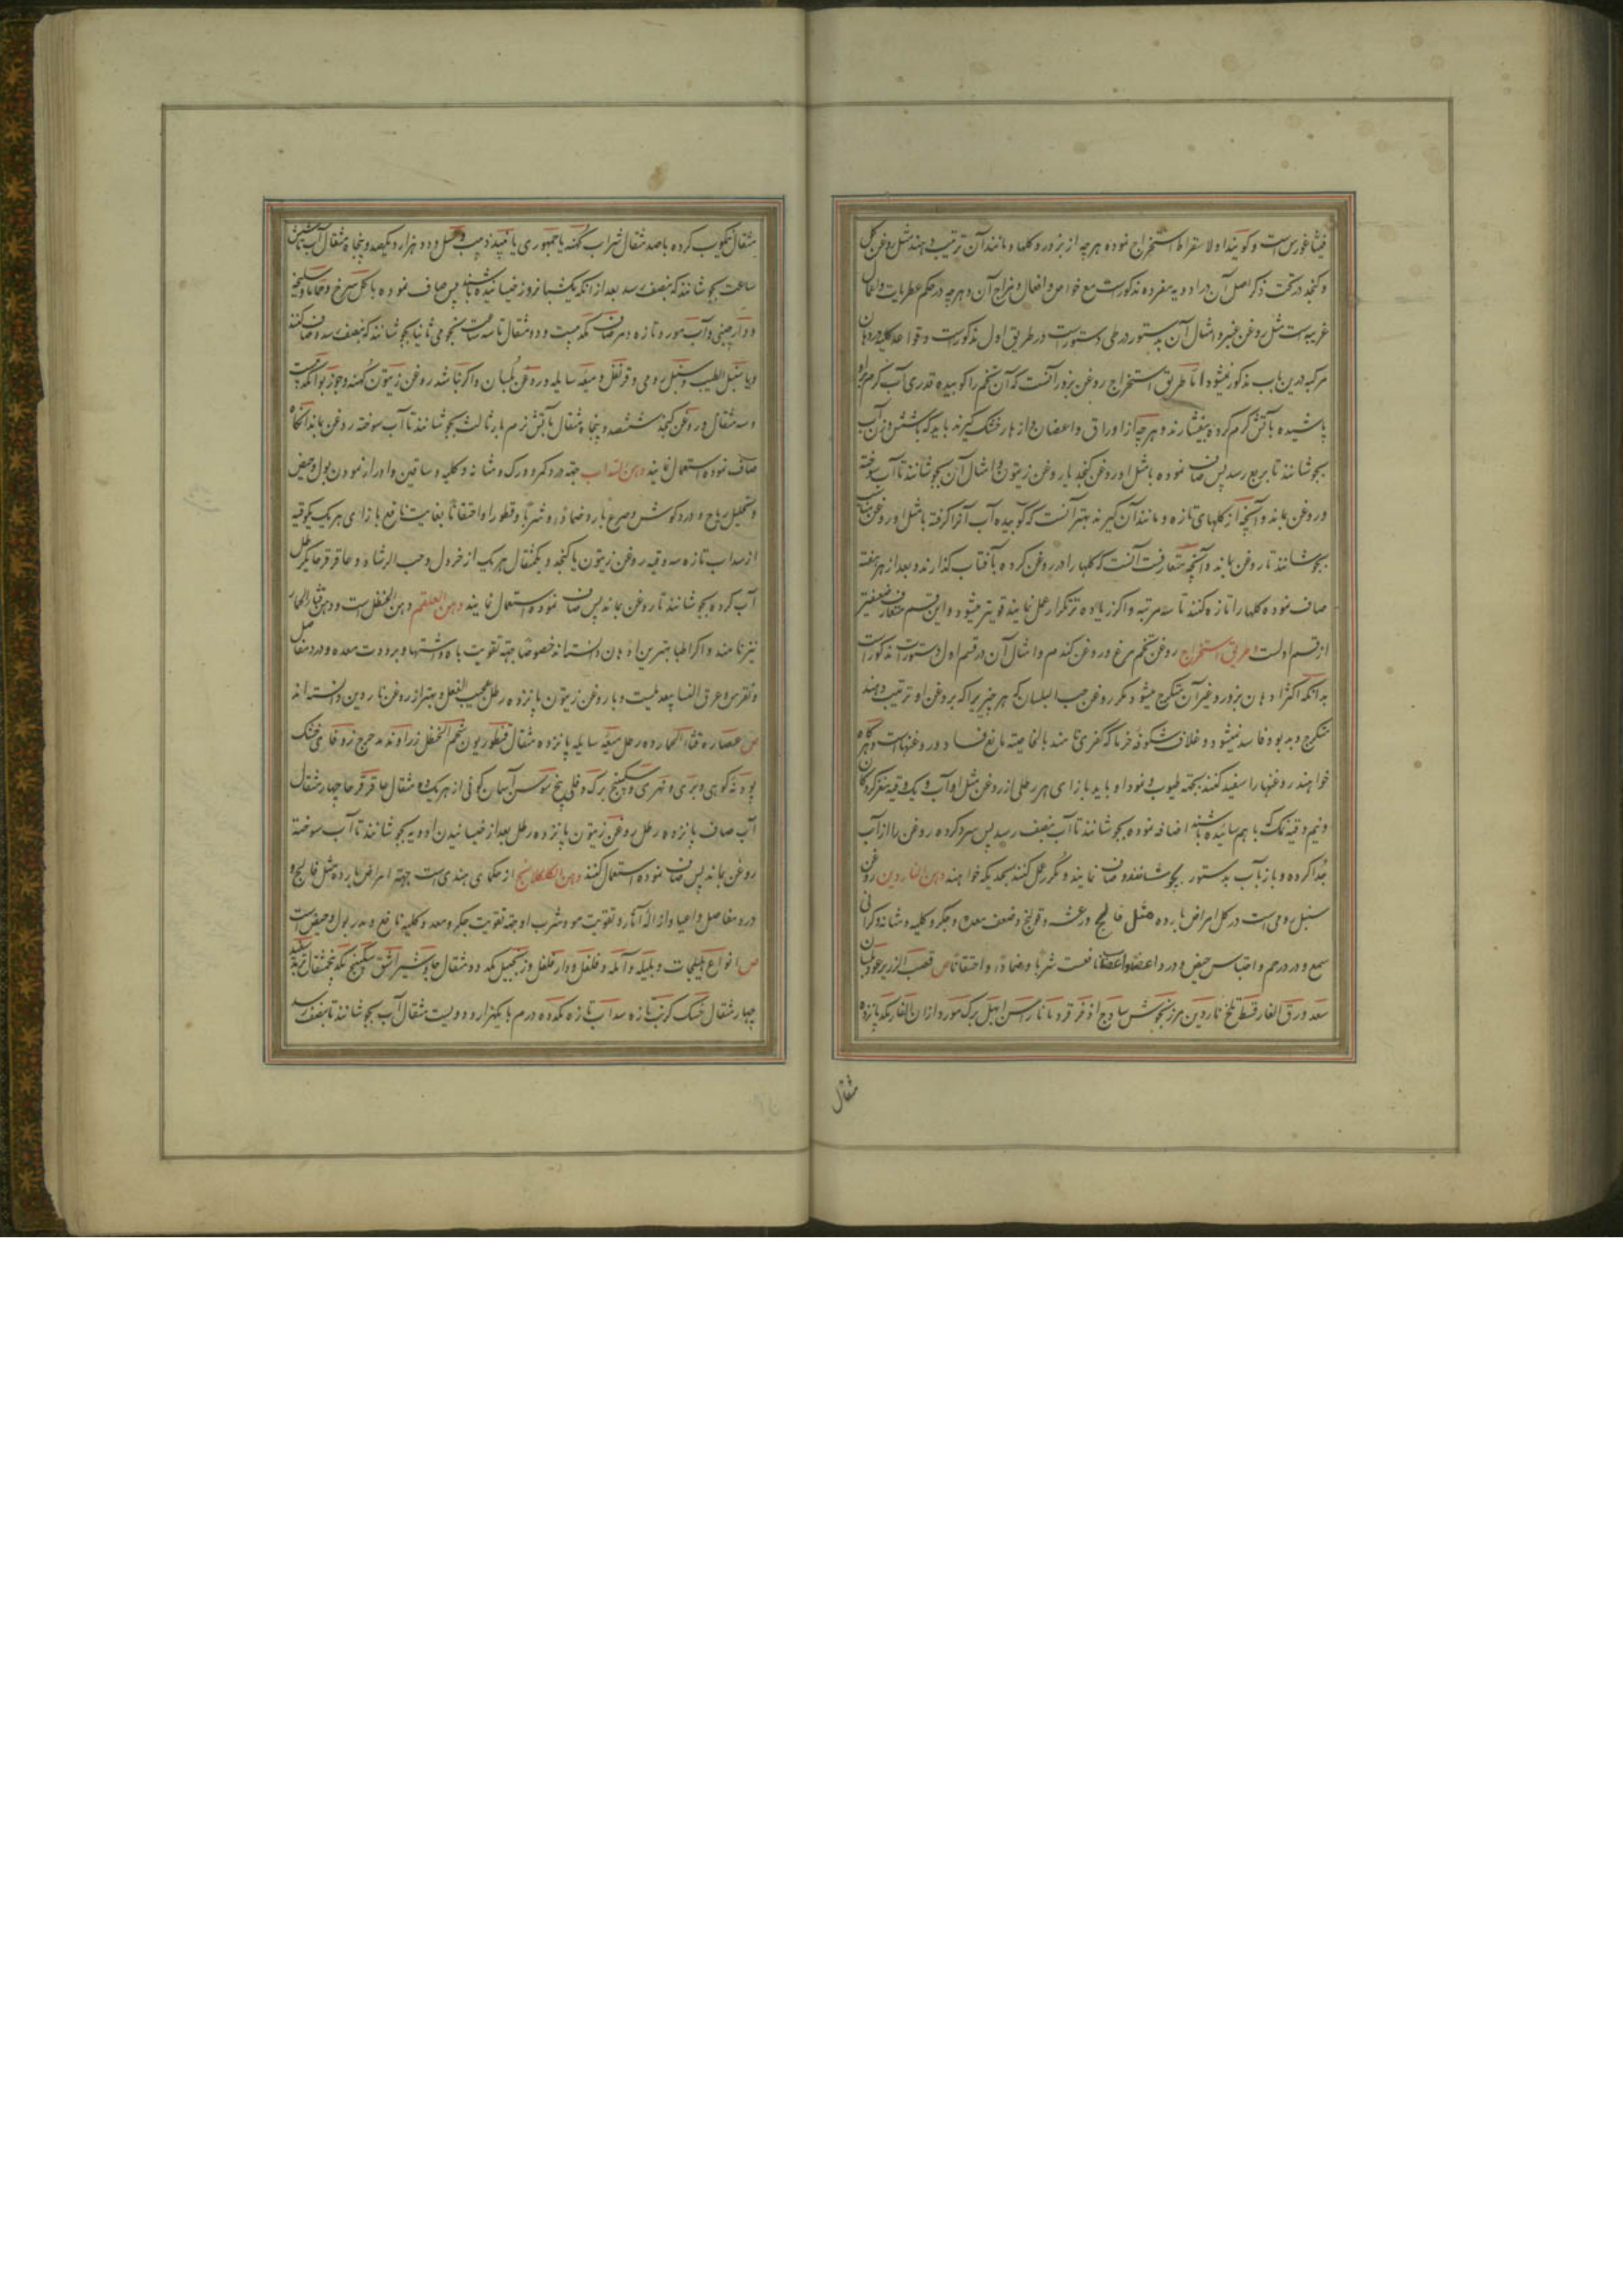 فیثاغورس است و کویند اولا سقراط استخراج نموده هر چه از بزور و کلها و مانند آن ترتیب دهند مثل روغن کل
و کنجد در تحت ذکر اصل آن در ادویه مفرده مذکورست مع خواص و افعال و مزاج آن و هر چه در حکم عطریات و اعمال
غریبه است مثل روغن عنبر و امثال آن بدستور در طی دستورات در طریق اول مذکورست و قواعد کلیه در دهان
مرکبه درین باب مذکور میشود اما طریق استخراج روغن بزور آنست که آن تخم را کوبیده قدری آب کرم بر او
پاشیده بآتش کرم کرده بیفشارند و هر چه از اوراق و اغصان و ازهار خشک کیرند باید که با شش وزن آب
بجوشانند تا بربع رسد پس صاف نموده با مثل او روغن کنجد یا روغن زیتون و امثال آن بجوشانند تا آب سوخته
و روغن بماند و آنچه از کلهای تازه و مانند آن کیرند بهتر آنست که کوبیده آب آنرا کرفته با مثل او روغن
بجوشانند تا روغن بماند و آنچه متعارفست آنست که کلها را در روغن کرده بآفتاب کذارند و بعد از هر هفته
صاف نموده کلها را تازه کنند تا سه مرتبه و اکر زیاده تر تکرار عمل نمایند قویتر میشود و این قسم متعارف ضعیفتر
از قسم اولست طریق استخراج روغن تخم مرغ و روغن کندم و امثال آن در قسم اول دستورات مذکورست
بدانکه اکثر ادهان بزور و غیر آن متکرج میشود مکر روغن حب البلسان که هر چیزیرا که بروغن او ترتیب دهند
متکرج و بدبو و فاسد نمیشود و غلاف شکوفه خرما که کفری نامند بالخاصیه مانع فساد و روغنهاست و هرکاه
خواهند روغنها را سفید کنند بجهة طیوب و نحو او باید بازای هر رطلی از روغن مثل او آب و یک وقیه مغز کردکان
و نیم وقیه نمک با هم سائیده باشند اضافه نموده بجوشانند تا آب بنصف رسد پس سرد کرده روغن را از آب
جدا کرده و باز بآب بدستور بجوشانند و صاف نمایند و مکرر عمل کنند بحدیکه خواهند دهن الناردین روغن
سنبل رومی است در کل امراض بارده مثل فالج و رعشه و قولنج و ضعف معده و جکر و کلیه و مثانه و کرانی
سمع و درد رحم و احتباس حیض و درد اعضا و اعصاب نافعست شربا و ضمادا و احتقانا ص قصب الذریره عود بلسان
سعد ورق الغار قسط تلخ ناردین مرزنجوش ساذج اذخر قردمانا راسن ابهل برک مورد اذان الفار یکد پانزده
مثقال
مثقال نیکوب کرده با صد مثقال شراب کهنه یا جمهوری یا نبیذ زبیب و عسل و دو هزار و یکصد و پنجاه مثقال آب شش
ساعت بجوشانند که بنصف رسد بعد از آنکه یکشبانروز خیسانیده باشند پس صاف نموده با کل سرخ و حماما و سلیخه
و دارچینی و آب مورد تازه و مر صاف یکد بیست و دو مثقال تا سه ساعت نجومی ثانیا بجوشانند که بنصف رسد و صاف کنند
و با سنبل الطیب و سنبل رومی و قرنفل و میعه سایله و روغن بلسان و اکر نباشد روغن زیتون کهنه و جوز بوا یکد بیست
و سه مثقال و روغن کنجد ششصد و پنجاه مثقال بآتش نرم بار ثالث بجوشانند تا آب سوخته روغن بماند آنکاه
صاف نموده استعمال نمایند دهن السداب جهة درد کمر و ورک و مثانه و کلیه و ساقین و ادرار نمودن بول و حیض
و تحلیل ریاح و درد کوش و صرع بارد ضمادا و شربا و قطورا و احتقانا بغایت نافع بازای هر یک وقیه
از سداب تازه سه وقیه روغن زیتون یا کنجد و یکمثقال هر یک از خردل و حب الرشاد و عاقرقرحا یکرطل
آب کرده بجوشانند تا روغن بماند پس صاف نموده استعمال نمایند دهن العلقم دهن الحنظل است و دهن قثاء الحمار
نیز نامند و اکر اطبا بهترین ادهان دانسته اند خصوصا جهة تقویت باه و اشتها و برودت معده و درد مفاصل
و نقرس و عرق النسا بیعدیلست و با روغن زیتون پانزده رطل عجیب الفعل و بهتر از روغن ناردین دانسته اند
ص عصاره قثاء الحمار ده رطل میعه سایله پانزده مثقال قنطوریون شحم الحنظل زراوند مدحرج زوفای خشک
پودنه کوهی و بری و نهری و سکبینج برک دفلی بیخ سوسن آسمان کونی از هر یک ده مثقال عاقرقرحا چهار مثقال
آب صاف پانزده رطل روغن زیتون پانزده رطل بعد از خیسانیدن ادویه بجوشانند تا آب سوخته
روغن بماند پس صاف نموده استعمال کنند دهن الکلکلانج از حکمای هندی است جهة امراض بارده مثل فالج و
درد مفاصل و اعیا و ازاله آثار و تقویت مو و شرب او جهة تقویت جکر و معده و کلیه نافع و مدر بول و حیض است
ص انواع هلیلجات و بلیله و آمله و فلفل و دارفلفل و زنجبیل یکد دو مثقال جاوشیر اشق سکبینج یکد پنجمثقال تربد سفید
چهار مثقال خسک کرنب تازه سداب تازه یکد ده درم با یکهزار و دویست مثقال آب بجوشانند تا بنصف رسد